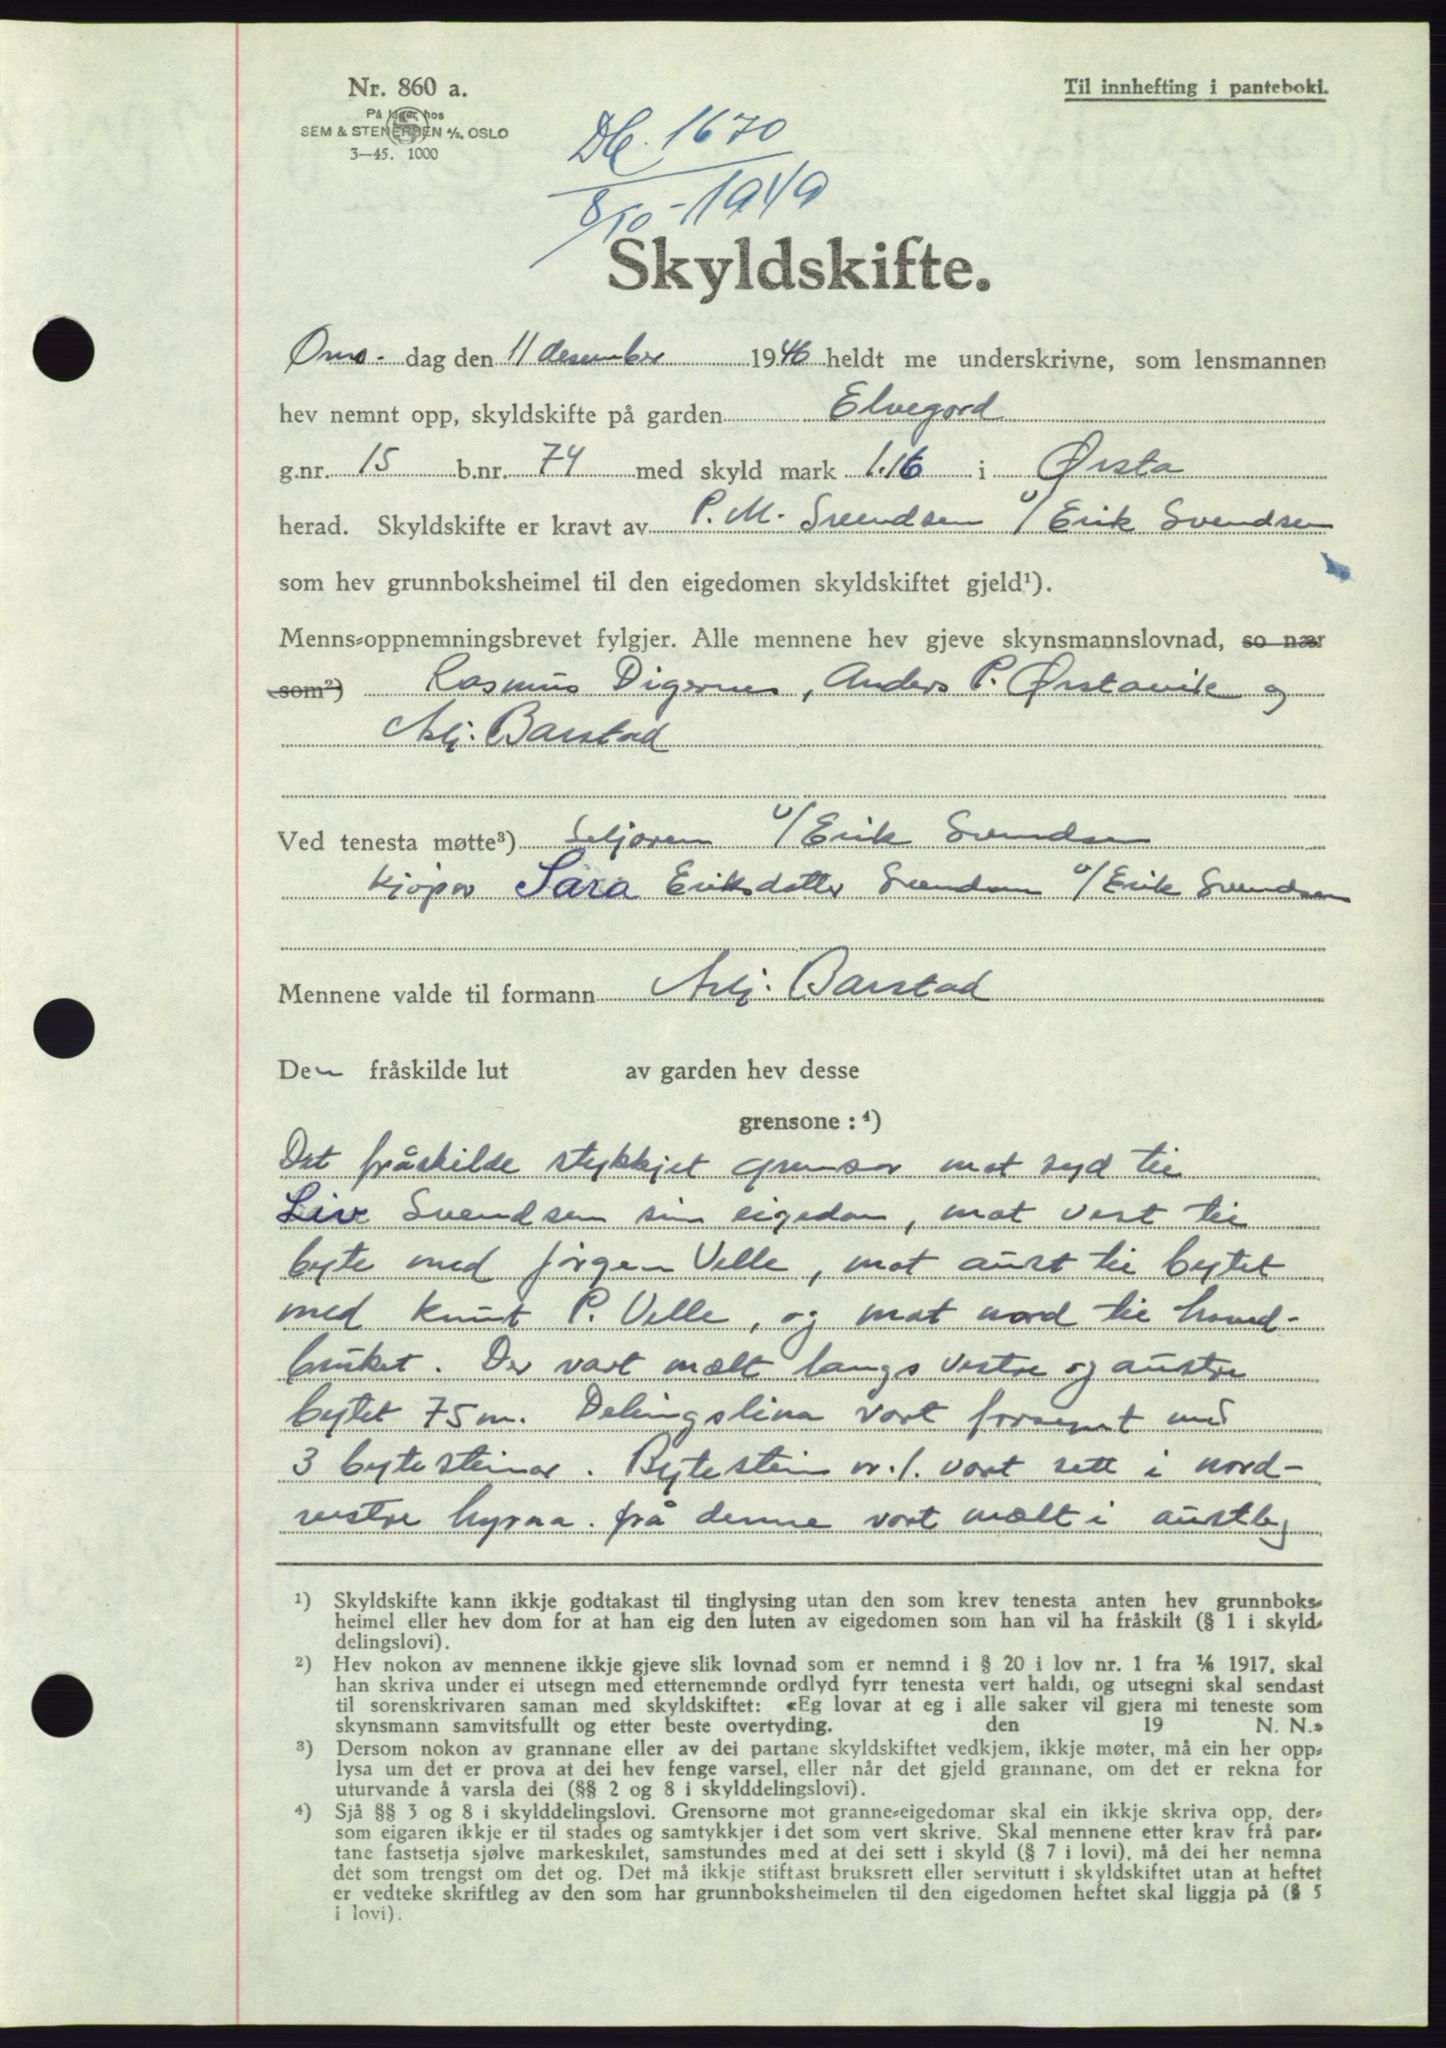 Nr. 860 a.
På lager hos
SEM & STENERSEN A/S, OSLO
3—45. 1000
Til innhefting i panteboki.
Db. 1670
8/10 - 1949
Skyldskifte.
Ons- dag den 11 desember 1946 heldt me underskrivne, som lensmannen
hev nemnt opp, skyldskifte på garden Elvegord
g.nr. 15 b.nr. 74 med skyld mark 1.16 i Ørsta
herad. Skyldskifte er kravt av P. M. Svendsen v/ Erik Svendsen
som hev grunnboksheimel til den eigedomen skyldskiftet gjeld¹).
Menns-oppnemningsbrevet fylgjer. Alle mennene hev gjeve skynsmannslovnad, so nær
som²) Rasmus Digernes, Anders P. Ørstavik og
Asbj. Barstad
Ved tenesta møtte³) Seljaren v/ Erik Svendsen
Kjøpar Sara Eriksdatter Svendsen v/ Erik Svendsen
Mennene valde til formann Asbj. Barstad
Den fråskilde lut av garden hev desse
grensone : ⁴)
Det fråskilde stykkjet grensar mot syd til
Liv Svendsen sin eigedom, mot vest til
byte med Jørgen Velle, mot aust til bytet
med Knut P. Velle, og mot nord til hovud-
bruket. Der vart mælt langs vestre og austre
bytet 75 m. Delingslina vart med
3 bytesteinar. Bytestein nr. 1. vart sett i nord-
vestre hyrna. frå denne vart mælt i austleg
¹) Skyldskifte kann ikkje godtakast til tinglysing utan den som krev tenesta anten hev grunnboks-
heimel eller hev dom for at han eig den luten av eigedomen som han vil ha fråskilt (§ 1 i skyld-
delingslovi).
²) Hev nokon av mennene ikkje gjeve slik lovnad som er nemnd i § 20 i lov nr. 1 fra 1/6 1917, skal
han skriva under ei utsegn med etternemnde ordlyd fyrr tenesta vert haldi, og utsegni skal sendast
til sorenskrivaren saman med skyldskiftet: «Eg lovar at eg i alle saker vil gjera mi teneste som
skynsmann samvitsfullt og etter beste overtyding. den 19 N. N.»
³) Dersom nokon av grannane eller av dei partane skyldskiftet vedkjem, ikkje møter, må ein her opp-
lysa um det er prova at dei hev fenge varsel, eller når det gjeld grannane, om det er rekna for
uturvande å varsla dei (§§ 2 og 8 i skylddelingslovi).
⁴) Sjå §§ 3 og 8 i skylddelingslovi. Grensorne mot granne-eigedomar skal ein ikkje skriva opp, der-
som eigaren ikkje er til stades og samtykkjer i det som vert skrive. Skal mennene etter krav frå par-
tane fastsetja sjølve markeskilet, samstundes med at dei sett i skyld (§ 7 i lovi), må dei her nemna
det som trengst om det og. Det må ikkje stiftast bruksrett eller servitutt i skyldskiftet utan at heftet
er vedteke skriftleg av den som har grunnboksheimelen til den eigedomen heftet skal liggja på (§ 5
i lovi).